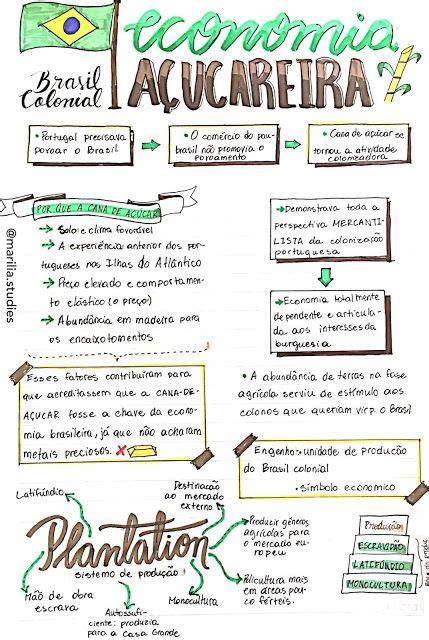 economia
Brasil
Colonial
AÇUCAREIRA
• Portugal precisava
povoar o Brasil
• O comércio do pau-
brasil não promovia o
povoamento
• Cana de açúcar se
tornou a atividade
colonizadora
POR QUE A CANA DE AÇÚCAR
Solo e clima favorável
A experiência anterior dos por-
tugueses nas Ilhas do Atlântico
Preço elevado e comportamen-
to elástico (o preço)
Abundância em madeira para
os encaixotamentos
@marilia.studies
Demonstrava toda a
perspectiva MERCANTI-
LISTA da colonização
portuguesa
Economia totalmente
dependente e articula-
da aos interesses da
burguesia
Esses fatores contribuíram para
que acreditassem que a CANA-DE-
AÇUCAR fosse a chave da econo-
mia brasileira, já que não acharam
metais preciosos.
• A abundância de terras na fase
agrícola serviu de estímulo aos
colonos que queriam vir p. o Brasil
Engenho: unidade de produção
do Brasil colonial
• símbolo economico
Latifúndio
Destinação
ao mercado
externo
Produzir gêneros
agrícolas para
o mercado eu-
ropeu
Plantation
sistema de produção
Policultura mais
em áreas pou-
co férteis.
Mão de obra
escrava
Autossufi-
ciente: produzia
para a casa Grande
Monocultura
Produção
ESCRAVIDÃO
LATIFÚNDIO
MONOCULTURA